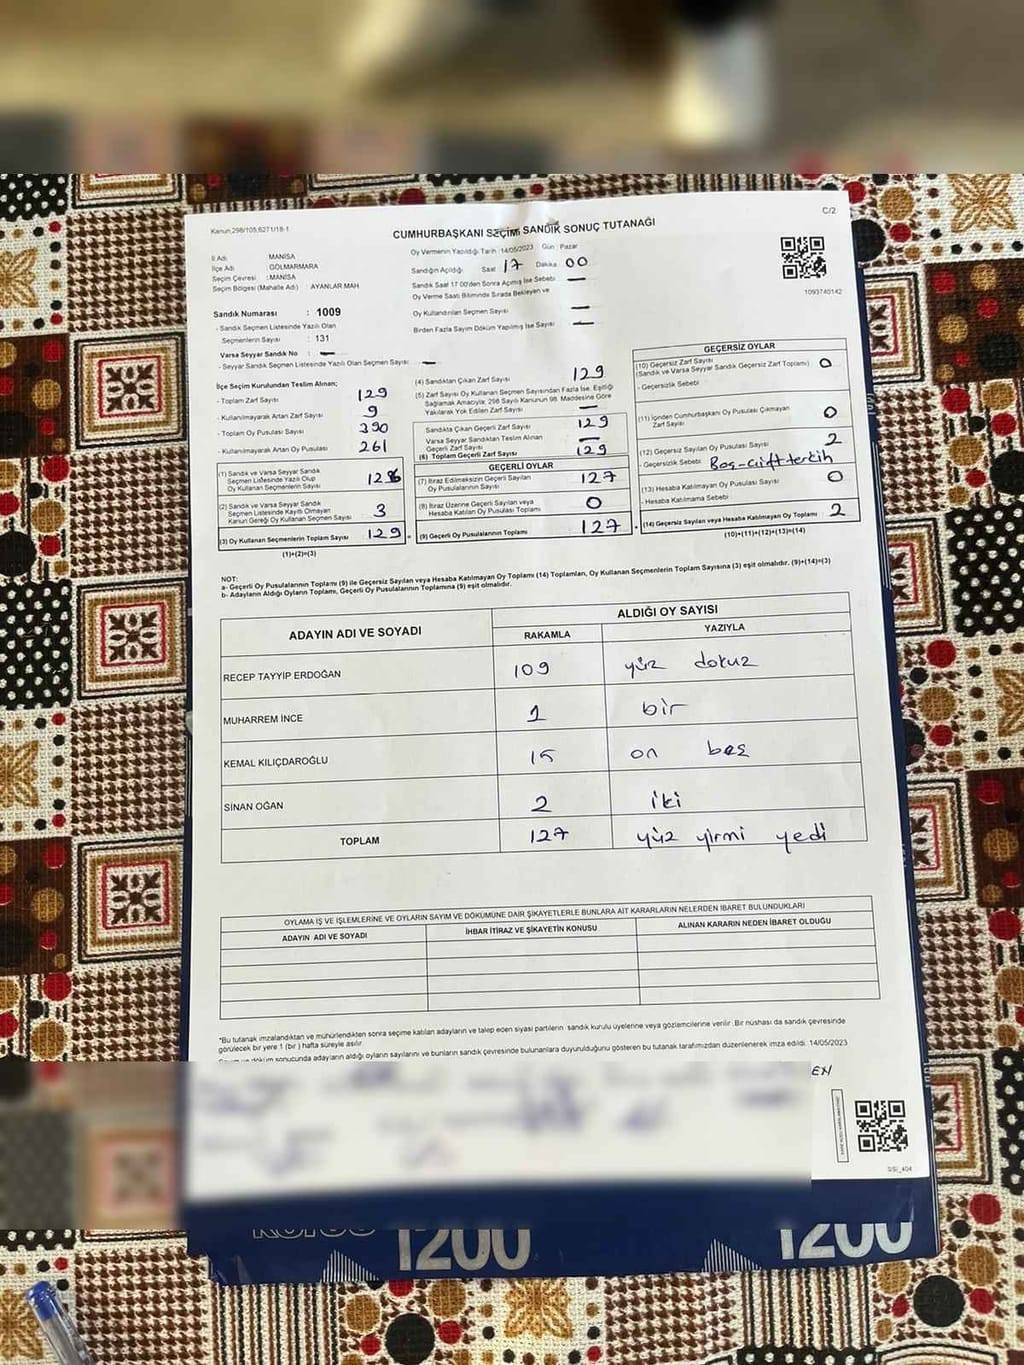 Kanun,298/105,6271/18-1
C/2
CUMHURBAŞKANI SEÇİMİ SANDIK SONUÇ TUTANAĞI
İl Adı : MANİSA
İlçe Adı : GÖLMARMARA
Seçim Çevresi : MANİSA
Seçim Bölgesi (Mahalle Adı) : AYANLAR MAH
Sandık Numarası : 1009
- Sandık Seçmen Listesinde Yazılı Olan
Seçmenlerin Sayısı : 131
Varsa Seyyar Sandık No : —
- Seyyar Sandık Seçmen Listesinde Yazılı Olan Seçmen Sayısı: —
Oy Vermenin Yapıldığı Tarih :14/05/2023 Gün : Pazar
Sandığın Açıldığı Saat 17 Dakika 00
Sandık Saat 17:00'den Sonra Açılmış İse Sebebi —
Oy Verme Saati Bitiminde Sırada Bekleyen ve
Oy Kullandırılan Seçmen Sayısı —
Birden Fazla Sayım Döküm Yapılmış İse Sayısı —
1093740142
İlçe Seçim Kurulundan Teslim Alınan;
- Toplam Zarf Sayısı 129
- Kullanılmayarak Artan Zarf Sayısı 9
- Toplam Oy Pusulası Sayısı 390
- Kullanılmayarak Artan Oy Pusulası 261
(1) Sandık ve Varsa Seyyar Sandık
Seçmen Listesinde Yazılı Olup
Oy Kullanan Seçmenlerin Sayısı 126
(2) Sandık ve Varsa Seyyar Sandık
Seçmen Listesinde Kayıtlı Olmayan
Kanun Gereği Oy Kullanan Seçmen Sayısı 3
(3) Oy Kullanan Seçmenlerin Toplam Sayısı 129
(1)+(2)=(3)
(4) Sandıktan Çıkan Zarf Sayısı 129
(5) Zarf Sayısı Oy Kullanan Seçmen Sayısından Fazla İse, Eşitliği
Sağlamak Amacıyla; 298 Sayılı Kanunun 98. Maddesine Göre
Yakılarak Yok Edilen Zarf Sayısı —
Sandıkta Çıkan Geçerli Zarf Sayısı 129
Varsa Seyyar Sandıktan Teslim Alınan
Geçerli Zarf Sayısı —
(6) Toplam Geçerli Zarf Sayısı 129
GEÇERLİ OYLAR
(7) İtiraz Edilmeksizin Geçerli Sayılan
Oy Pusulalarının Sayısı 127
(8) İtiraz Üzerine Geçerli Sayılan veya
Hesaba Katılan Oy Pusulası Toplamı 0
(9) Geçerli Oy Pusulalarının Toplamı 127
GEÇERSİZ OYLAR
(10) Geçersiz Zarf Sayısı
(Sandık ve Varsa Seyyar Sandık Geçersiz Zarf Toplamı) 0
- Geçersizlik Sebebi
(11) İçinden Cumhurbaşkanı Oy Pusulası Çıkmayan
Zarf Sayısı 0
(12) Geçersiz Sayılan Oy Pusulası Sayısı 2
- Geçersizlik Sebebi Boş-çift tercih
(13) Hesaba Katılmayan Oy Pusulası Sayısı 0
- Hesaba Katılmama Sebebi
(14) Geçersiz Sayılan veya Hesaba Katılmayan Oy Toplamı 2
(10)+(11)+(12)+(13)=(14)
NOT:
a- Geçerli Oy Pusulalarının Toplamı (9) ile Geçersiz Sayılan veya Hesaba Katılmayan Oy Toplamı (14) Toplamları, Oy Kullanan Seçmenlerin Toplam Sayısına (3) eşit olmalıdır. (9)+(14)=(3)
b- Adayların Aldığı Oyların Toplamı, Geçerli Oy Pusulalarının Toplamına (9) eşit olmalıdır.
ADAYIN ADI VE SOYADI
ALDIĞI OY SAYISI
RAKAMLA YAZIYLA
RECEP TAYYİP ERDOĞAN 109 yüz dokuz
MUHARREM İNCE 1 bir
KEMAL KILIÇDAROĞLU 15 on beş
SİNAN OĞAN 2 iki
TOPLAM 127 yüz yirmi yedi
OYLAMA İŞ VE İŞLEMLERİNE VE OYLARIN SAYIM VE DÖKÜMÜNE DAİR ŞİKAYETLERLE BUNLARA AİT KARARLARIN NELERDEN İBARET BULUNDUKLARI
ADAYIN ADI VE SOYADI İHBAR İTİRAZ VE ŞİKAYETİN KONUSU ALINAN KARARIN NEDEN İBARET OLDUĞU
*Bu tutanak imzalandıktan ve mühürlendikten sonra seçime katılan adayların ve talep eden siyasi partilerin sandık kurulu üyelerine veya gözlemcilerine verilir .Bir nüshası da sandık çevresinde
görülecek bir yere 1 (bir ) hafta süreyle asılır.
döküm sonucunda adayların aldığı oyların sayılarını ve bunların sandık çevresinde bulunanlara duyurulduğunu gösteren bu tutanak tarafımızdan düzenlenerek imza edildi. 14/05/2023
SSİ_404
1200
1200